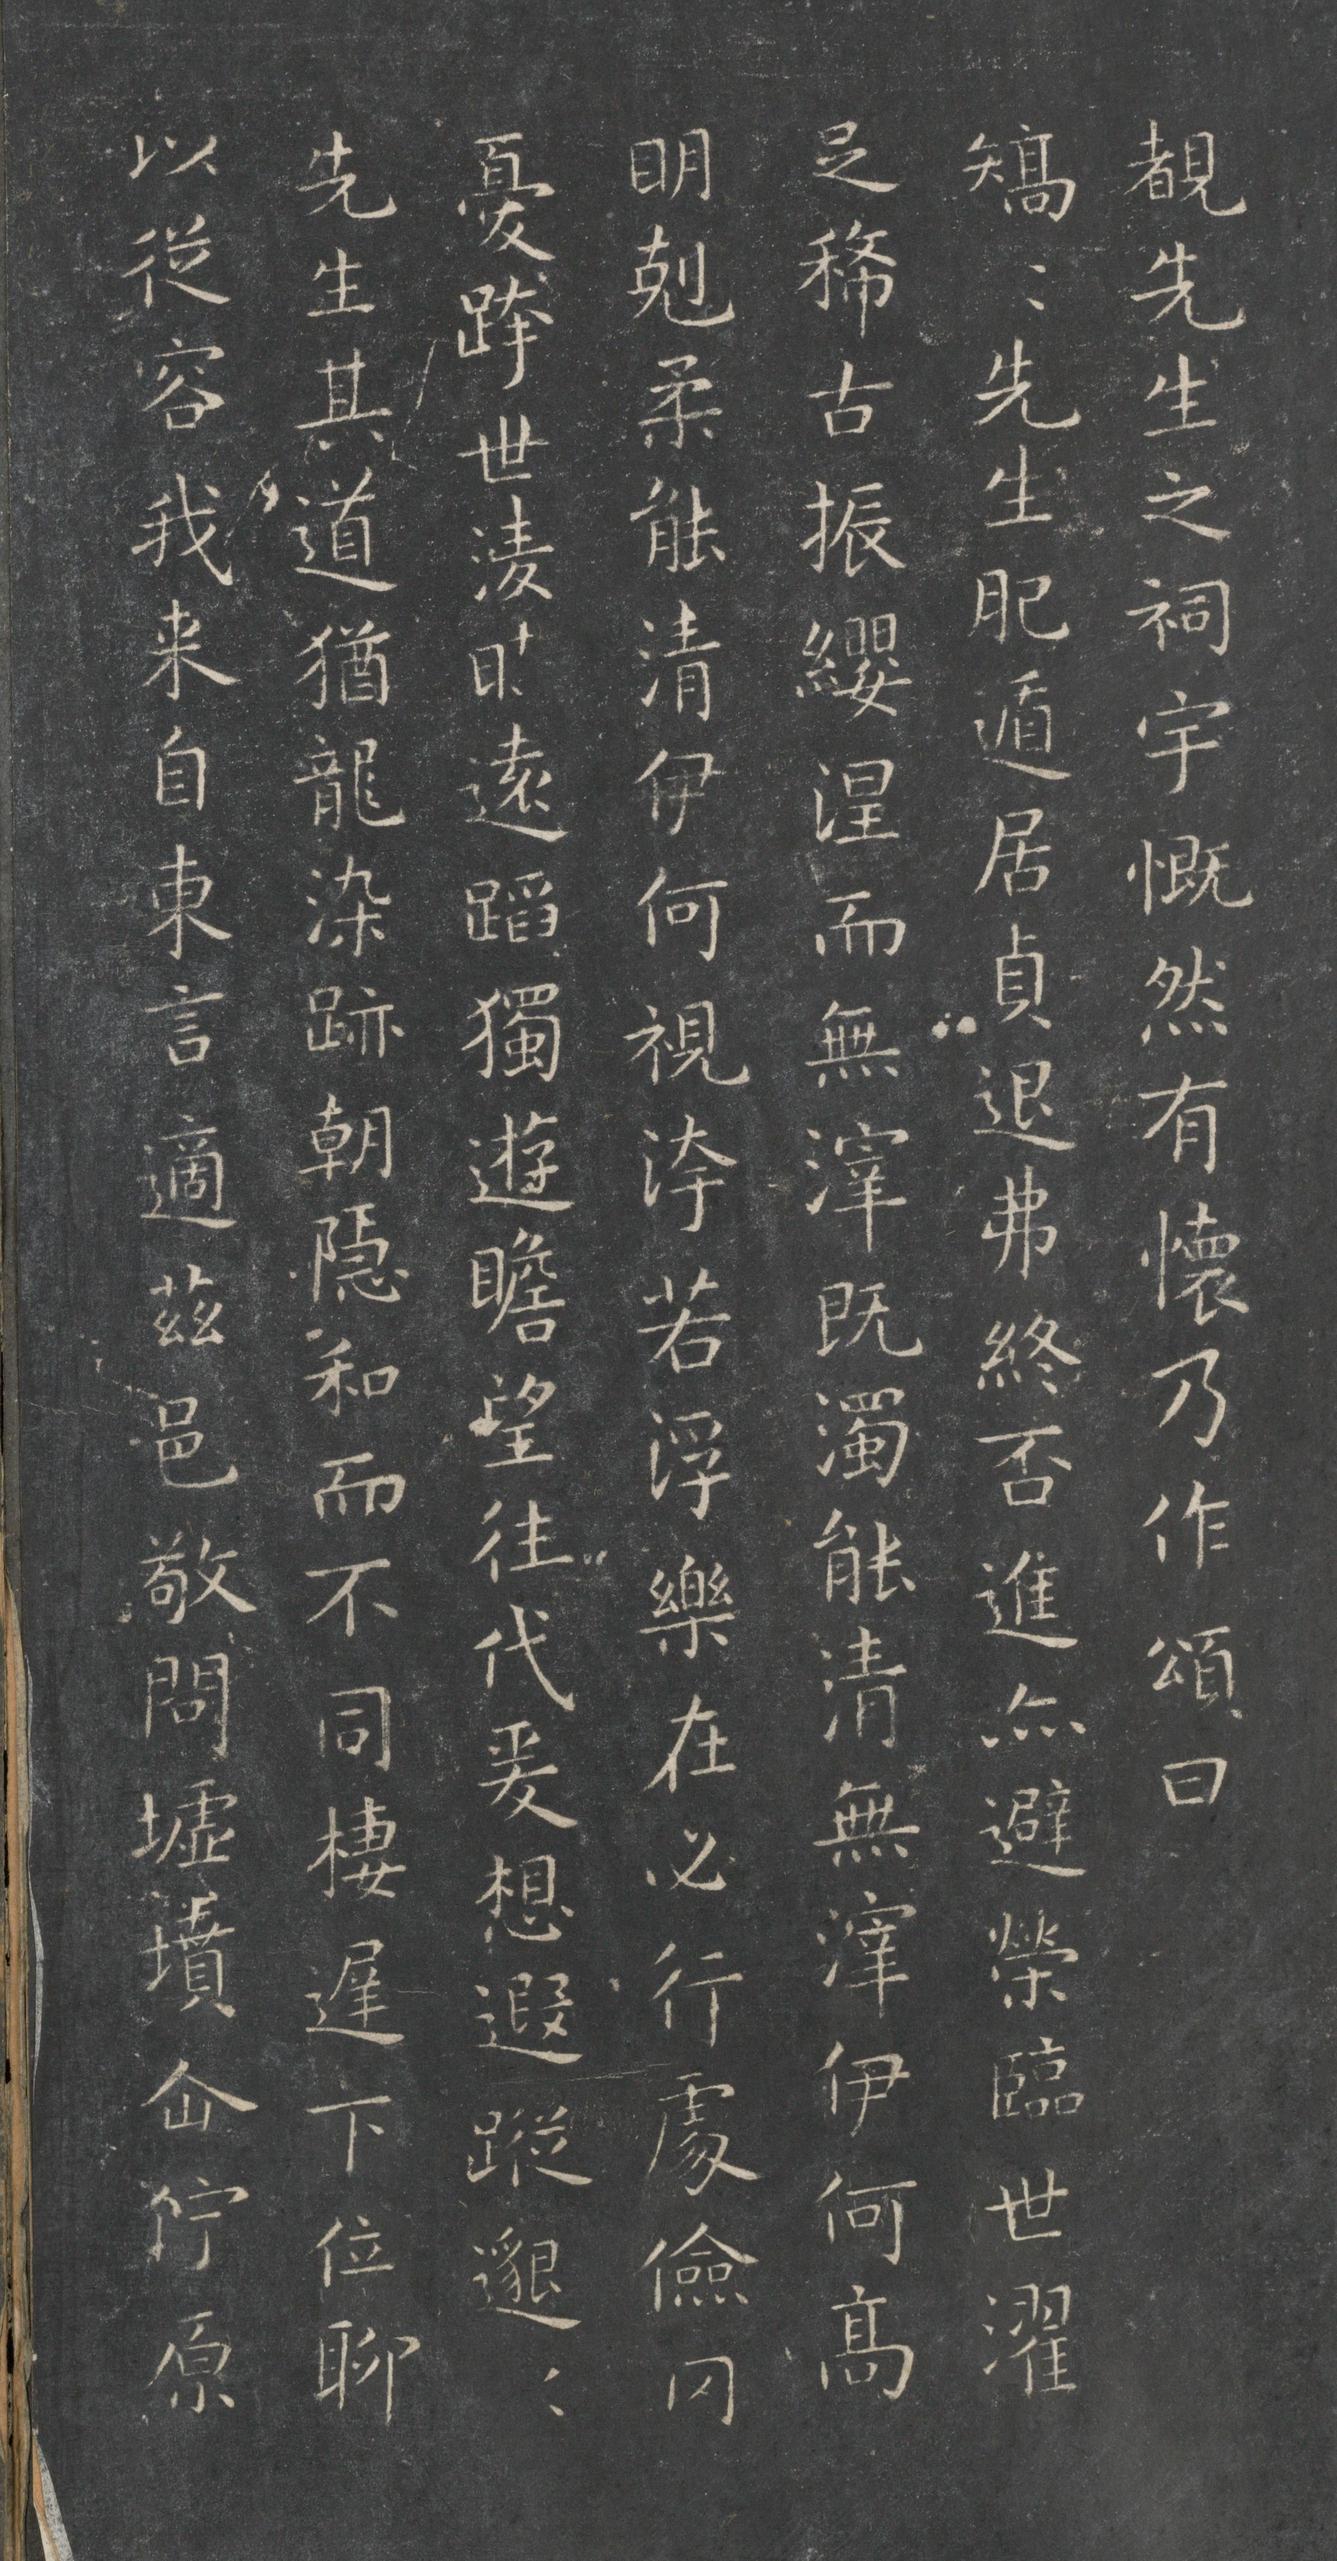 覩先生之祠宇慨然有懷乃作頌曰
矯〻先生肥遁居貞退弗終否進亦避榮臨世濯
足稀古振纓涅而無滓既濁能清無滓伊何高
明剋柔能清伊何視汙若浮樂在必行處儉罔
憂跨世淩時遠蹈獨遊瞻望往代爰想遐蹤邈〻
先生其道猶龍染跡朝隱和而不同棲遲下位聊
以從容我来自東言適茲邑敬問墟墳企佇原